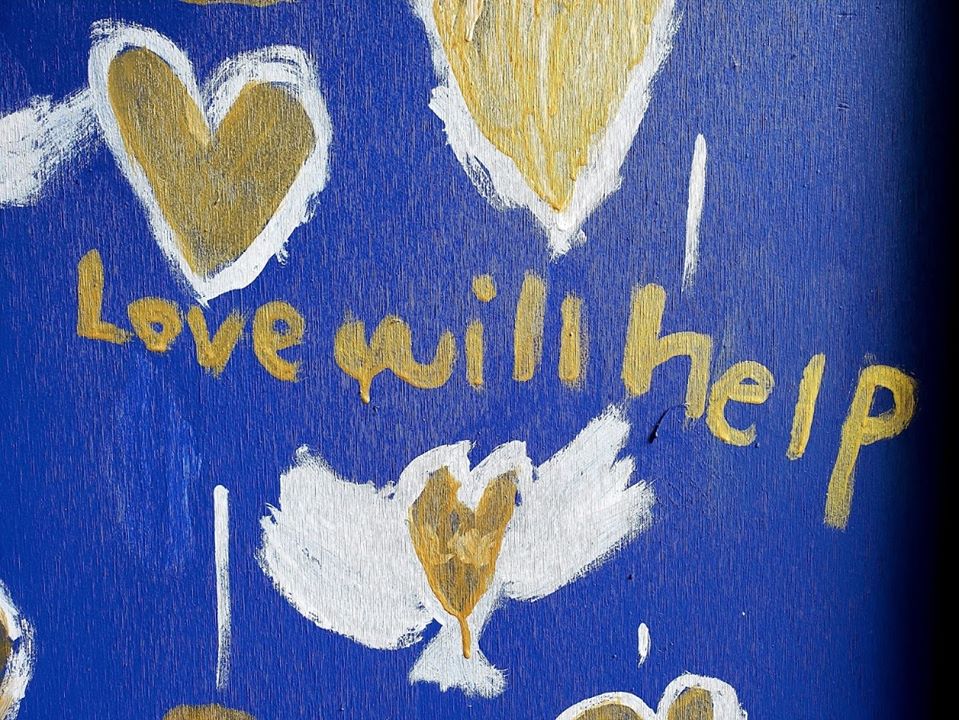 Love will help